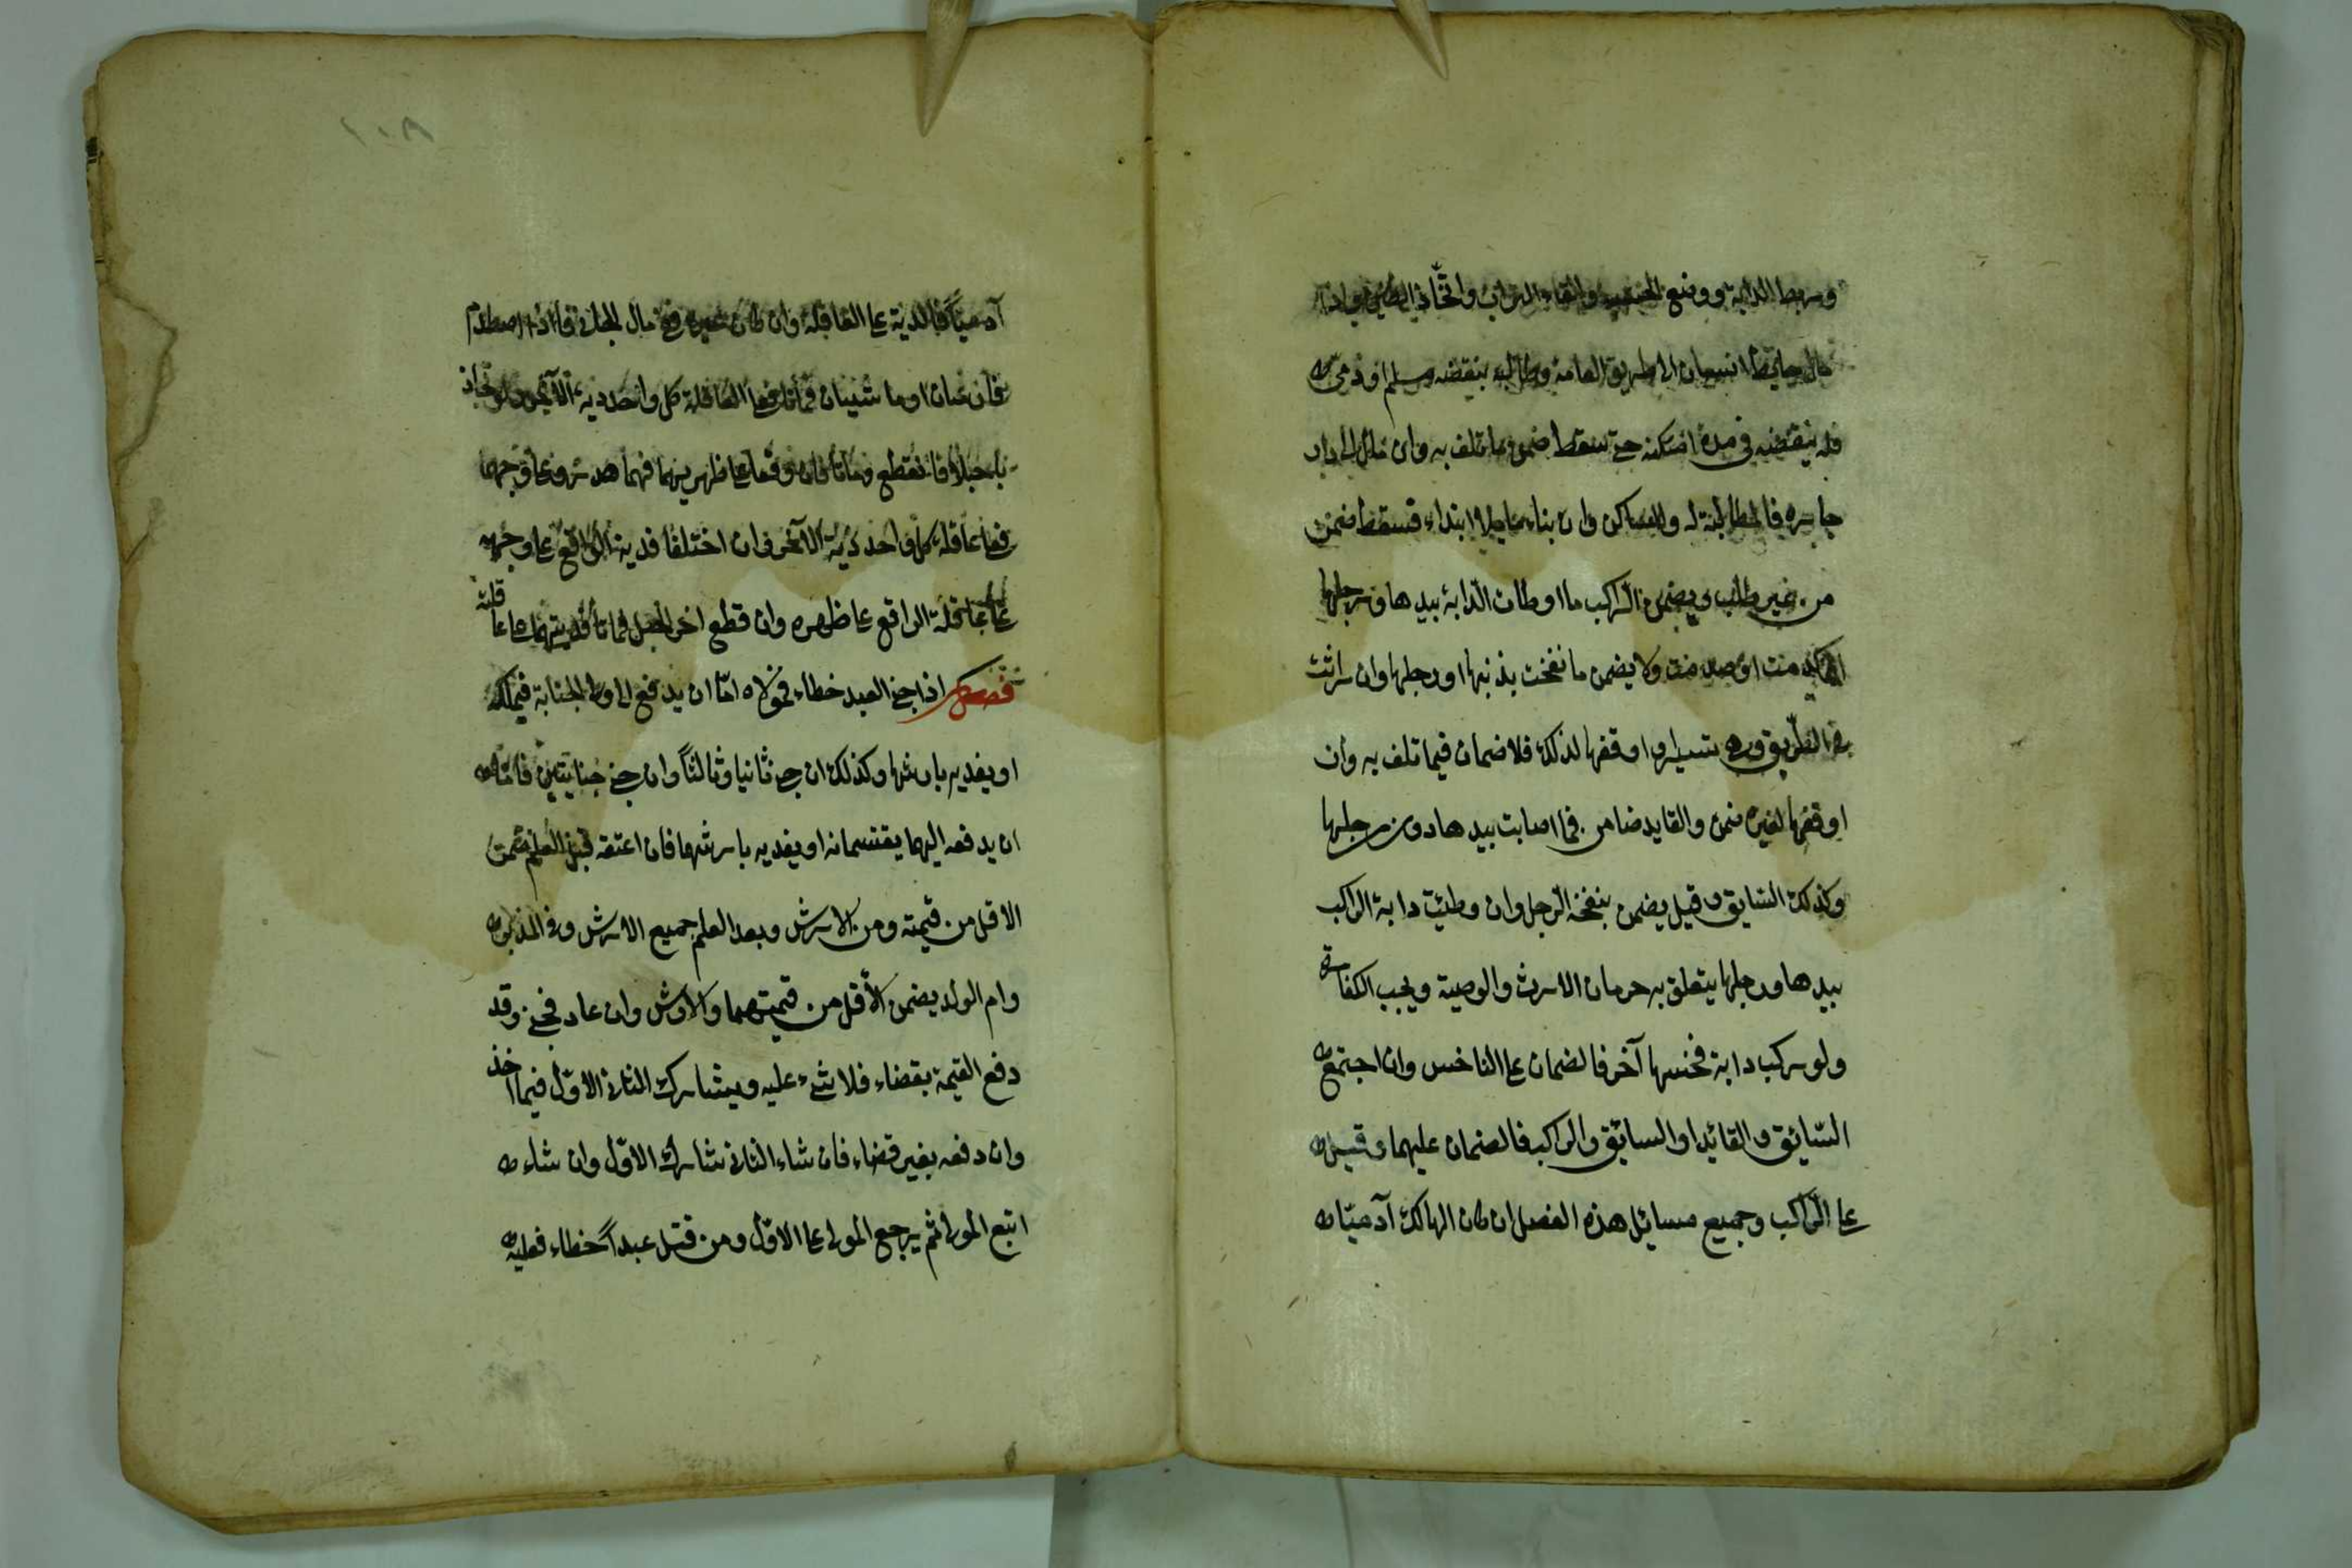 وربط الدابة ووضع الخشبة والقاء التراب واتخاذ الطين واذا
مال حايط انسان الى طريق العامة وطالبه بنقضه مسلم او ذمى
فلم ينقضه فى مدة امكنه حتى سقط ضمن ما تلف به وان مال الى دار
جاره فالمطالبة له وللساكن وان بناه مايلا ابتداء فسقط ضمن
من غير طلب ويضمن الراكب ما اوطات الدابة بيدها ورجلها
او كدمت او صدمت ولا يضمن ما نفحت بذنبها او رجلها وان راثت
فى الطريق وهى تسير او اوقفها لذلك فلا ضمان فيما تلف به وان
اوقفها لغيره ضمن والقايد ضامن فيما اصابت بيدها دون رجلها
وكذلك السايق وقيل يضمن بنفحة الرجل وان وطئت دابة الراكب
بيدها ورجلها يتعلق به حرمان الارث والوصية ويجب الكفارة
ولو ركب دابة فنخسها آخر فالضمان على الناخس وان اجتمع
السّائق والقائد او السائق والراكب فالضمان عليهما وقيل
على الرّاكب وجميع مسايل هذه الفصل ان كان الهالك آدميّا
١٠٨
آدميّاً فالدية على العاقلة وان كان غيره فى مال الجانى فاذا اصطدم
فارسان او ماشيان فماتا فعلى العاقلة كل واحد دية الآخر ولو تجاذ
با حبلا فانقطع وماتا فان وقعا على ظهريهما فهما هدر وعلى وجههما
فعلى عاقلة كل واحد دية الآخر وان اختلفا فدية الواقع على وجهه
على عاقلة الواقع على ظهره وان قطع اخر الحبل فماتا فديتهما على عا
قلته
فصل اذا جنى العبد خطاء فمولاه امّا ان يدفع الى ولى الجناية فيملكه
او يفديه بارشها وكذلك ان جنى ثانيا وثالثاً وان جنى جنايتين فامّا
ان يدفعه اليهما يقتسمانه او يفديه بارشهما فان اعتقه قبل العلم ضمن
الاقل من قيمته ومن الارش وبعد العلم جميع الارش وفى المدبر
وام الولد يضمن الأقل من قيمتهما والارش وان عاد فجنى وقد
دفع القيمة بقضاء فلا شىء عليه ويشارك الثانى الاوّل فيما اخذ
وان دفعه بغير قضاء فان شاء الثانى شارك الاوّل وان شاء
اتبع المولى ثم يرجع المولى على الاوّل ومن قتل عبداً خطاء فعليه